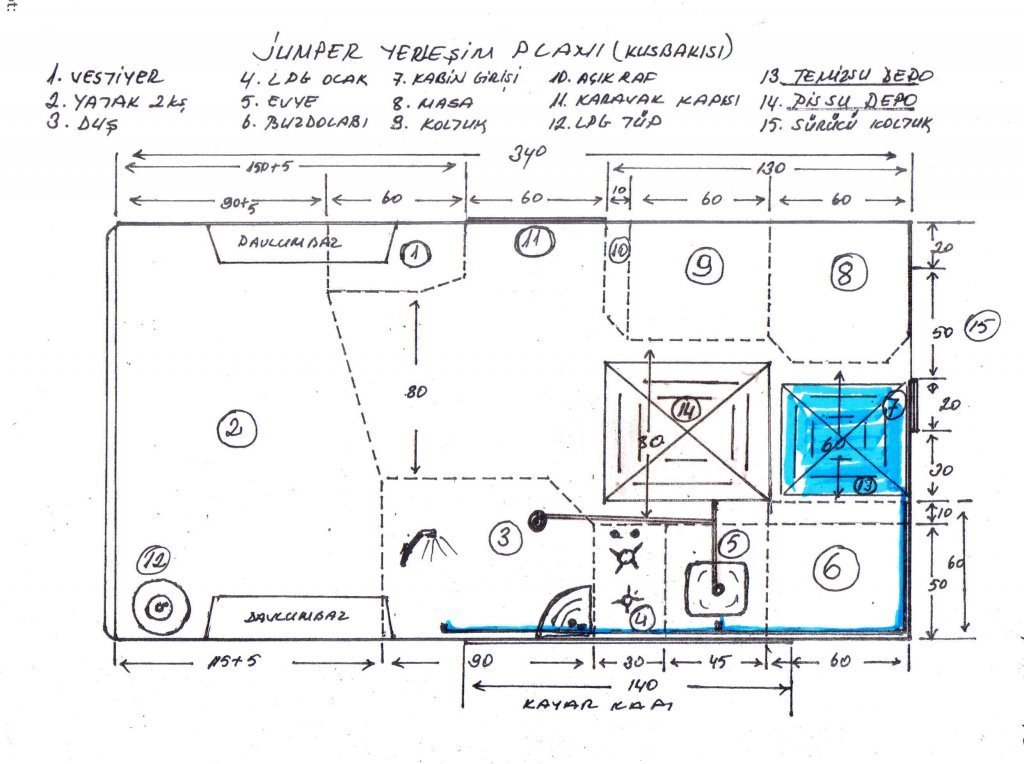 JUMPER YERLEŞİM PLANI (KUSBAKISI)
1. VESTİYER
2. YATAK 2KŞ
3. DUŞ
4. LPG OCAK
5. EVYE
6. BUZDOLABI
7. KABİN GİRİŞİ
8. MASA
9. KOLTUK
10. AÇIK RAF
11. KARAVAN KAPISI
12. LPG TÜP
13. TEMİZSU DEPO
14. PİSSU DEPO
15. SÜRÜCÜ KOLTUK
340
150+5 130
90+5 60 60 10 60 60
DAVLUMBAZ 1 11 10 9 8 20
50 15
80
14 7 20
2 80 60
13
10
3 5 60
12 6
50
DAVLUMBAZ 4
115+5 90 30 45 60
140
KAYAR KAPI